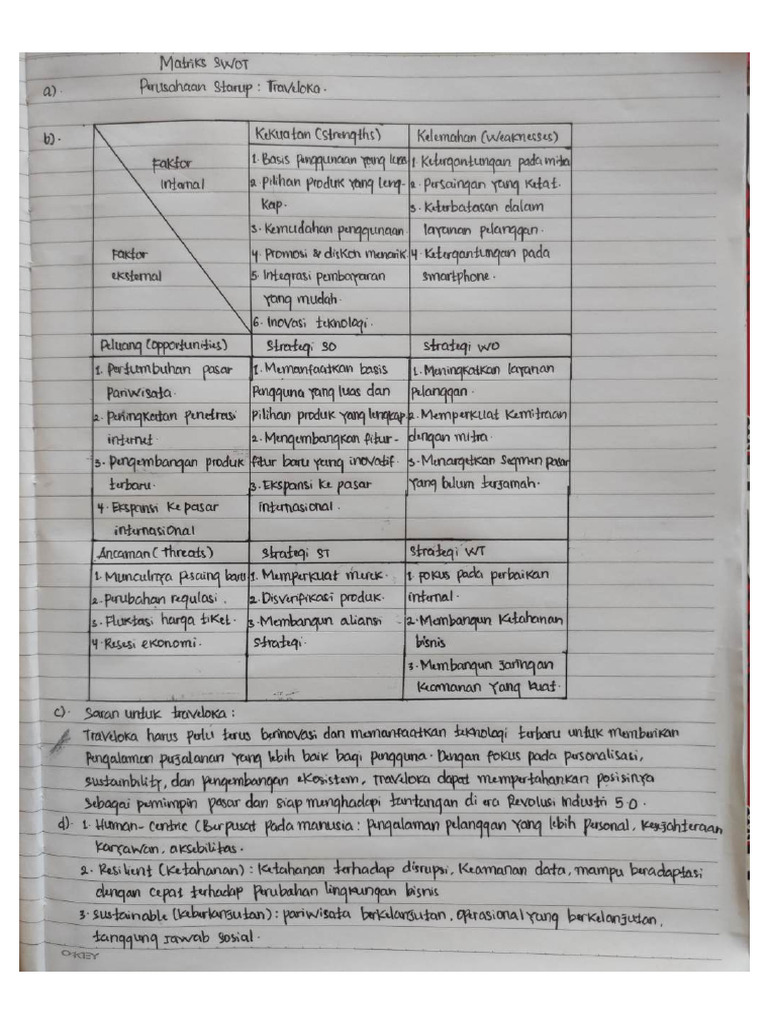 Matriks SWOT
a). Perusahaan Starup : Traveloka.
b).
Faktor
Internal
Faktor
eksternal
Kekuatan (Strengths)
1. Basis penggunaan yang luas
2. Pilihan produk yang leng-
kap.
3. Kemudahan penggunaan.
4. Promosi & diskon menarik.
5. Integrasi pembayaran
yang mudah.
6. Inovasi teknologi.
Kelemahan (Weaknesses)
1. Ketergantungan pada mitra
2. Persaingan yang ketat.
3. Keterbatasan dalam
layanan pelanggan.
4. Ketergantungan pada
smartphone.
Peluang (opportunities)
1. Pertumbuhan pasar
Pariwisata.
2. Peningkatan penetrasi
internet.
3. Pengembangan produk
terbaru.
4. Ekspansi ke pasar
internasional
Strategi SO
1. Memanfaatkan basis
Pengguna yang luas dan
Pilihan produk yang lengkap
2. Mengembangkan fitur-
fitur baru yang inovatif.
3. Ekspansi ke pasar
internasional.
Strategi WO
1. Meningkatkan layanan
Pelanggan.
2. Memperkuat Kemitraan
dengan mitra.
3. Menargetkan Segmen pasar
yang bulum terjamah.
Ancaman (Threats)
1. Munculnya pesaing baru
2. Perubahan regulasi.
3. Fluktasi harga tiket.
4. Resesi ekonomi.
Strategi ST
1. Memperkuat merek.
2. Disverifikasi produk.
3. Membangun aliansi
strategi.
Strategi WT
1. Fokus pada perbaikan
internal.
2. Membangun Ketahanan
bisnis
3. Membangun Jaringan
Keamanan yang kuat.
c). Saran untuk traveloka :
Traveloka harus perlu terus berinovasi dan memanfaatkan teknologi terbaru untuk memberikan
Pengalaman perjalanan yang lebih baik bagi pengguna. Dengan fokus pada personalisasi,
sustainbility, dan pengembangan ekosistem, traveloka dapat mempertahankan posisinya
sebagai pemimpin pasar dan siap menghadapi tantangan di era Revolusi Industri 5.0.
d). 1. Human-Centric (Berpusat pada manusia : pengalaman pelanggan yang lebih personal, kesejahteraan
karyawan, aksebilitas.
2. Resilient (Ketahanan) : Ketahanan terhadap disrupsi, Keamanan data, mampu beradaptasi
dengan cepat terhadap perubahan lingkungan bisnis
3. Sustainable (Keberlanjutan) : pariwisata berkelanjutan, operasional yang berkelanjutan,
tanggung jawab sosial.
OKEY